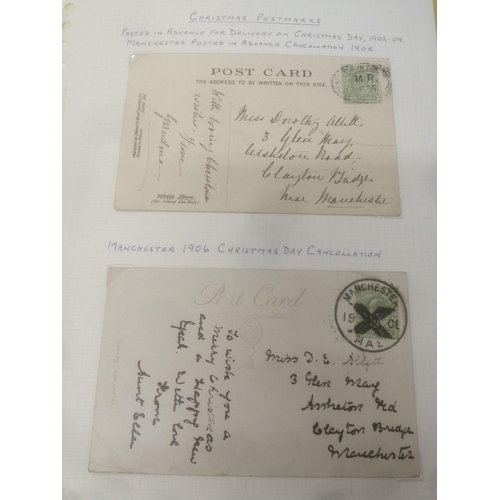 CHRISTMAS POSTMARKS
POSTED IN ADVANCE FOR DELIVERY ON CHRISTMAS DAY, 1902-09
MANCHESTER POSTED IN ADVANCE CANCELLATION 1905
POST CARD
THE ADDRESS TO BE WRITTEN ON THIS SIDE.
With loving Christmas
wishes from
Grandma
Write Here.
Miss Dorothy
3 Glen May,
Road,
Clayton Bridge
Near Manchester
MANCHESTER 1906 CHRISTMAS DAY CANCELLATION
Post Card
MANCHESTER
19 06
To wish you a
Merry Christmas
and a Happy New
Year. With love
From
Aunt Ellen
Miss D. E.
3 Glen May
Assheton Rd
Clayton Bridge
Manchester